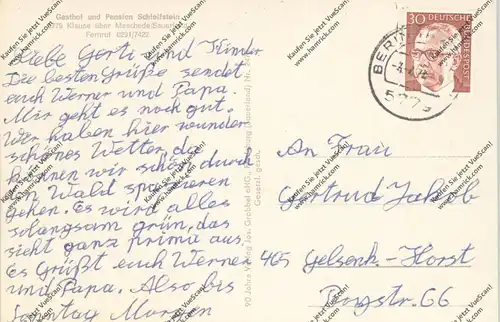 Gasthof und Pension Schleifstein
5779 Klause über Meschede/Sauerland
Fernruf 0291/7422
Liebe Gerti und Kinder
Die besten Grüße sendet
euch Werner und Papa.
Mir geht es noch gut.
Wir haben hier wunder
schönes Wetter, da
können wir schön durch
den Wald spazieren
gehen. Es wird alles
solangsam grün, das
sieht ganz prima aus.
Es Grüßt euch Werner
und Papa. Also bis
Sonntag Morgen
90 Jahre Verlag Jos. Grobbel oHG.
Gesetzl. gesch.
30 DEUTSCHE
BUNDESPOST
5779
An Frau
Gertrud Jakob
465 Gelsenk-Horst
Bogstr. 66
Kaufen Sie jetzt VueScan!
www.hamrick.com